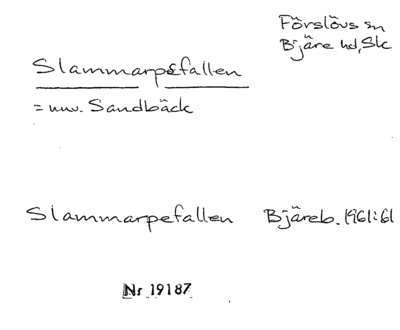 Förslövs sn
Bjäre hd, Skc
Slammarpefallen
= nuv. Sandbäck
Slammarpefallen Bjäreb. 1961:61
Nr 19187